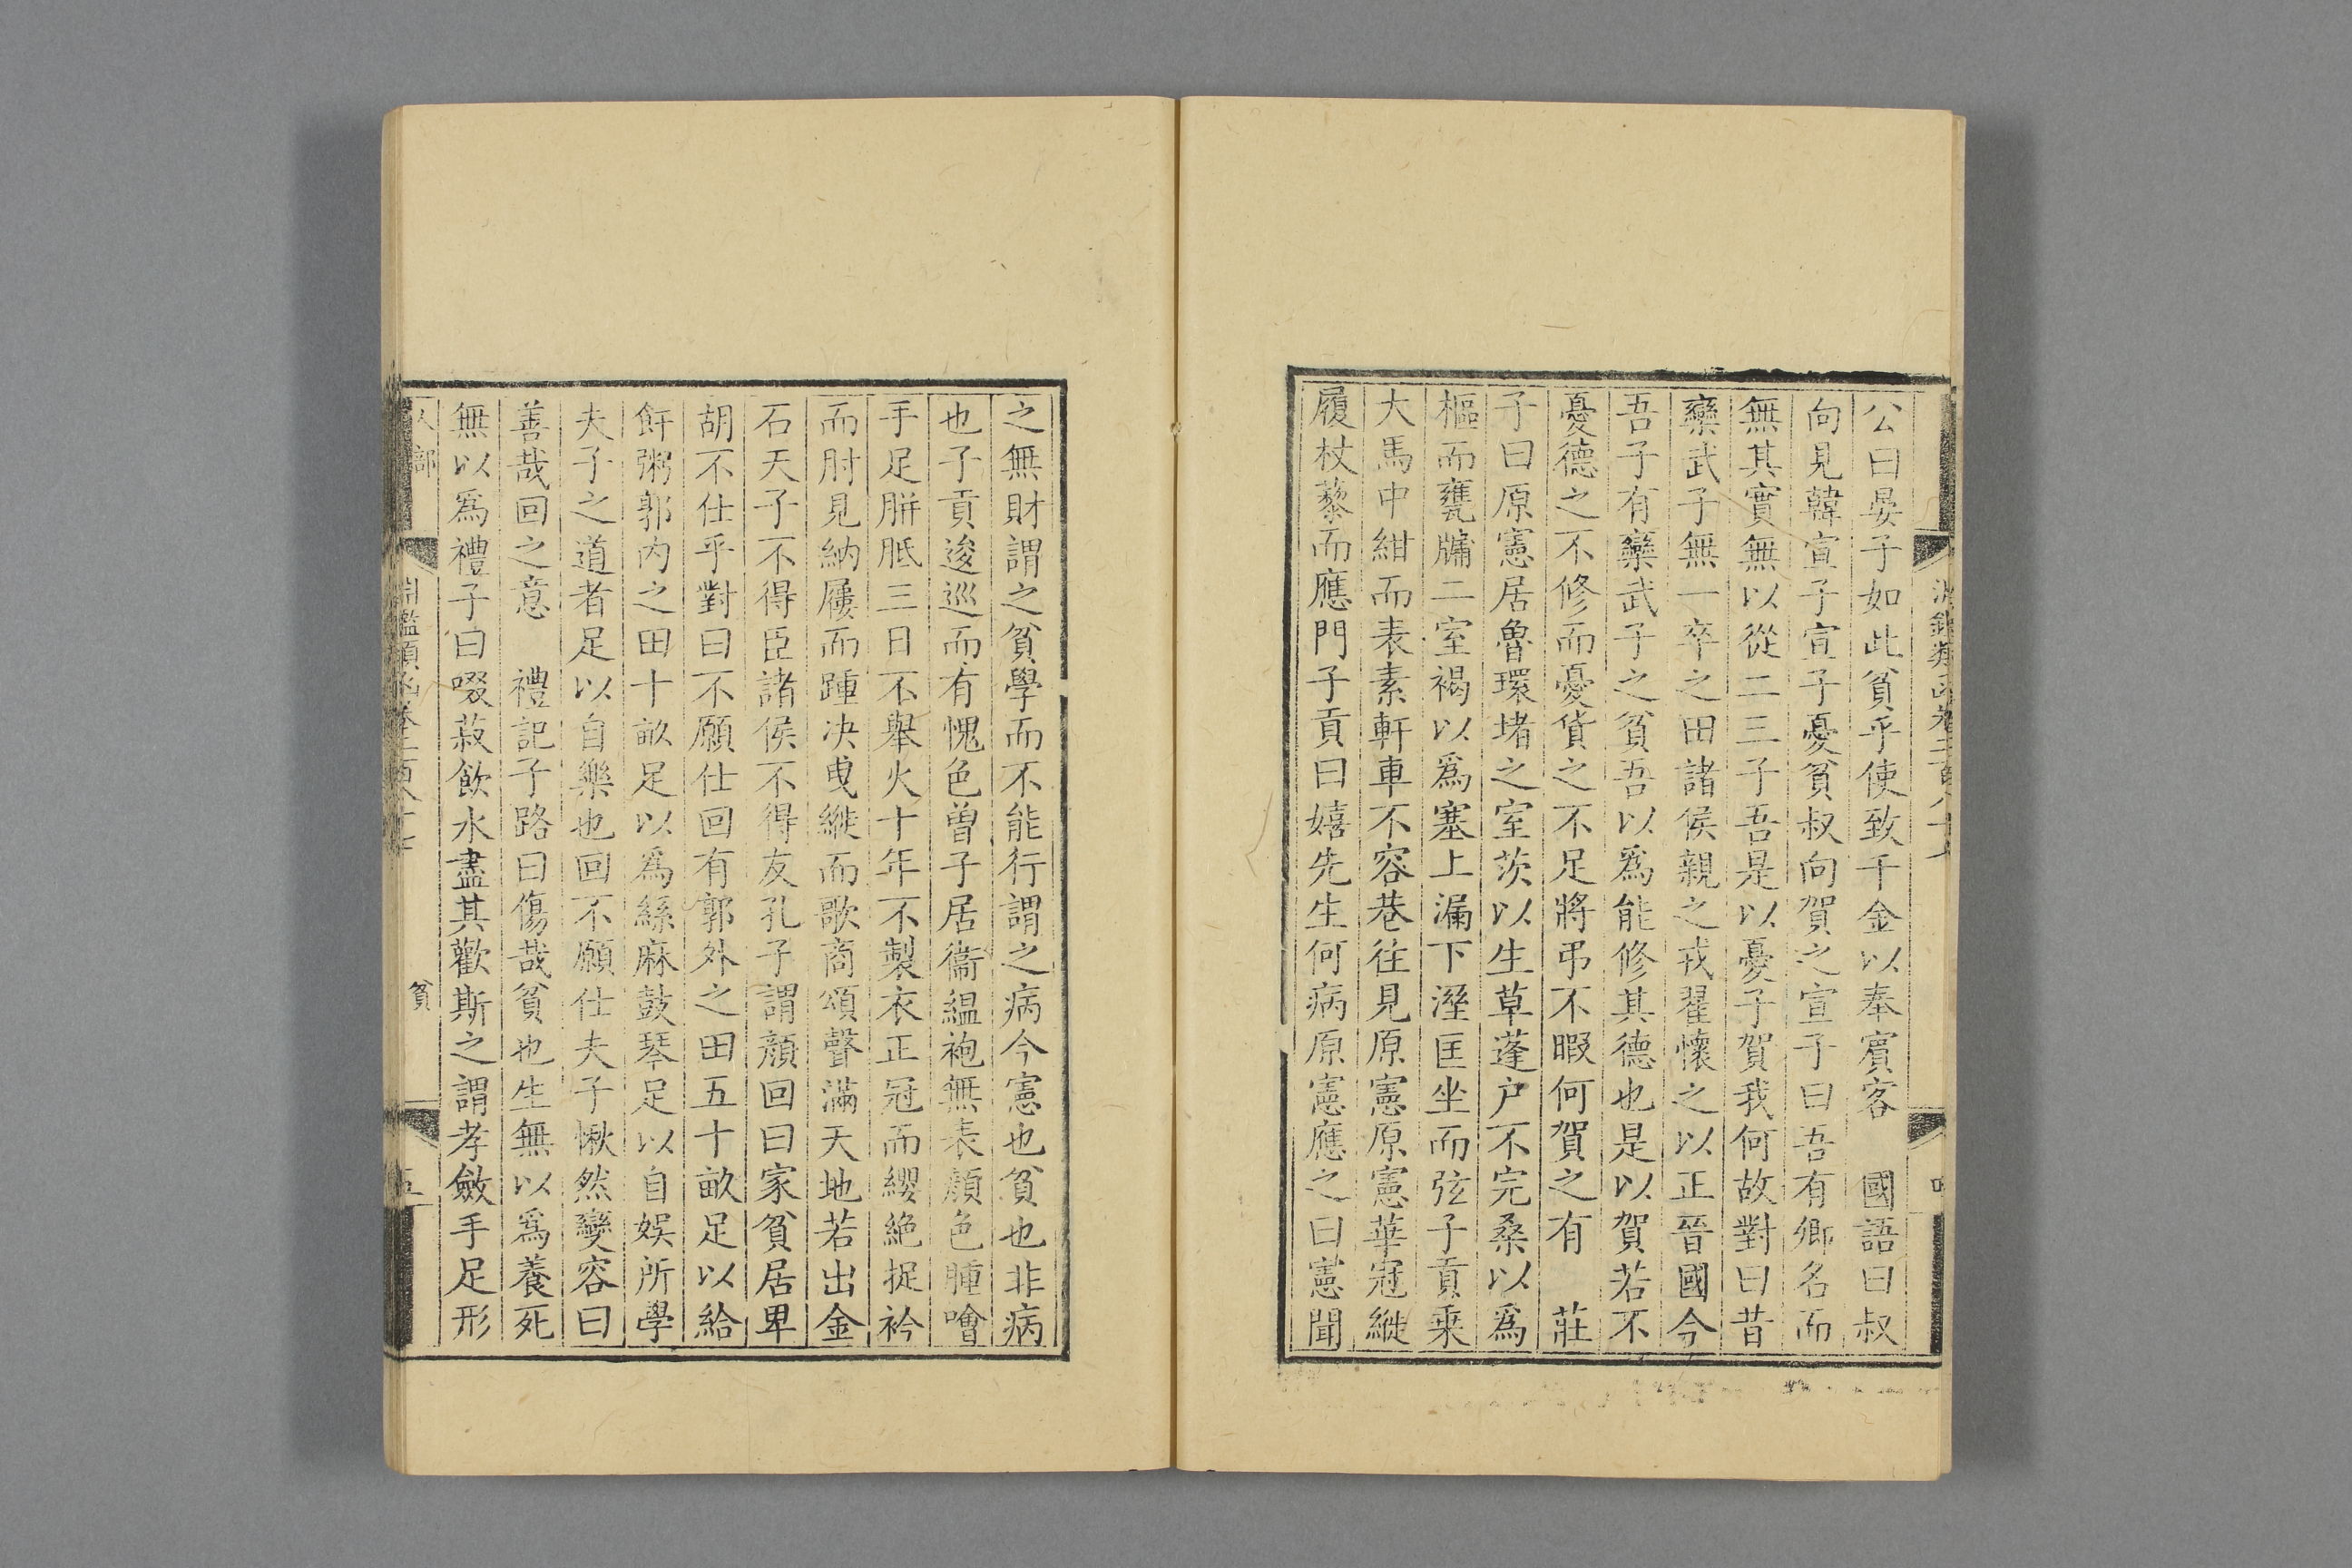 公曰晏子如此貧乎使致千金以奉賓客　國語曰叔
向見韓宣子宣子憂貧叔向賀之宣子曰吾有卿名而
無其實無以從二三子吾是以憂子賀我何故對曰昔
欒武子無一卒之田諸侯親之戎翟懷之以正晉國今
吾子有欒武子之貧吾以爲能修其德也是以賀若不
憂德之不修而憂貨之不足將弔不暇何賀之有　莊
子曰原憲居魯環堵之室茨以生草蓬户不完桑以爲
樞而甕牖二室褐以爲塞上漏下溼匡坐而弦子貢乗
大馬中紺而表素軒車不容巷往見原憲原憲華冠縰
履杖藜而應門子貢曰嘻先生何病原憲應之曰憲聞
之無財謂之貧學而不能行謂之病今憲也貧也非病
也子貢逡巡而有愧色曾子居衞緼袍無表顔色腫噲
手足胼胝三日不舉火十年不製衣正冠而纓絶捉衿
而肘見納屨而踵决曳縰而歌商頌聲滿天地若出金
石天子不得臣諸侯不得友孔子謂顔回曰家貧居卑
胡不仕乎對曰不願仕回有郭外之田五十畝足以給
飦粥郭内之田十畝足以爲絲麻鼓琴足以自娱所學
夫子之道者足以自樂也回不願仕夫子愀然變容曰
善哉回之意　禮記子路曰傷哉貧也生無以爲養死
無以爲禮子曰啜菽飲水盡其歡斯之謂孝斂手足形
人部　淵鑑類函卷二百八十七　貧　五